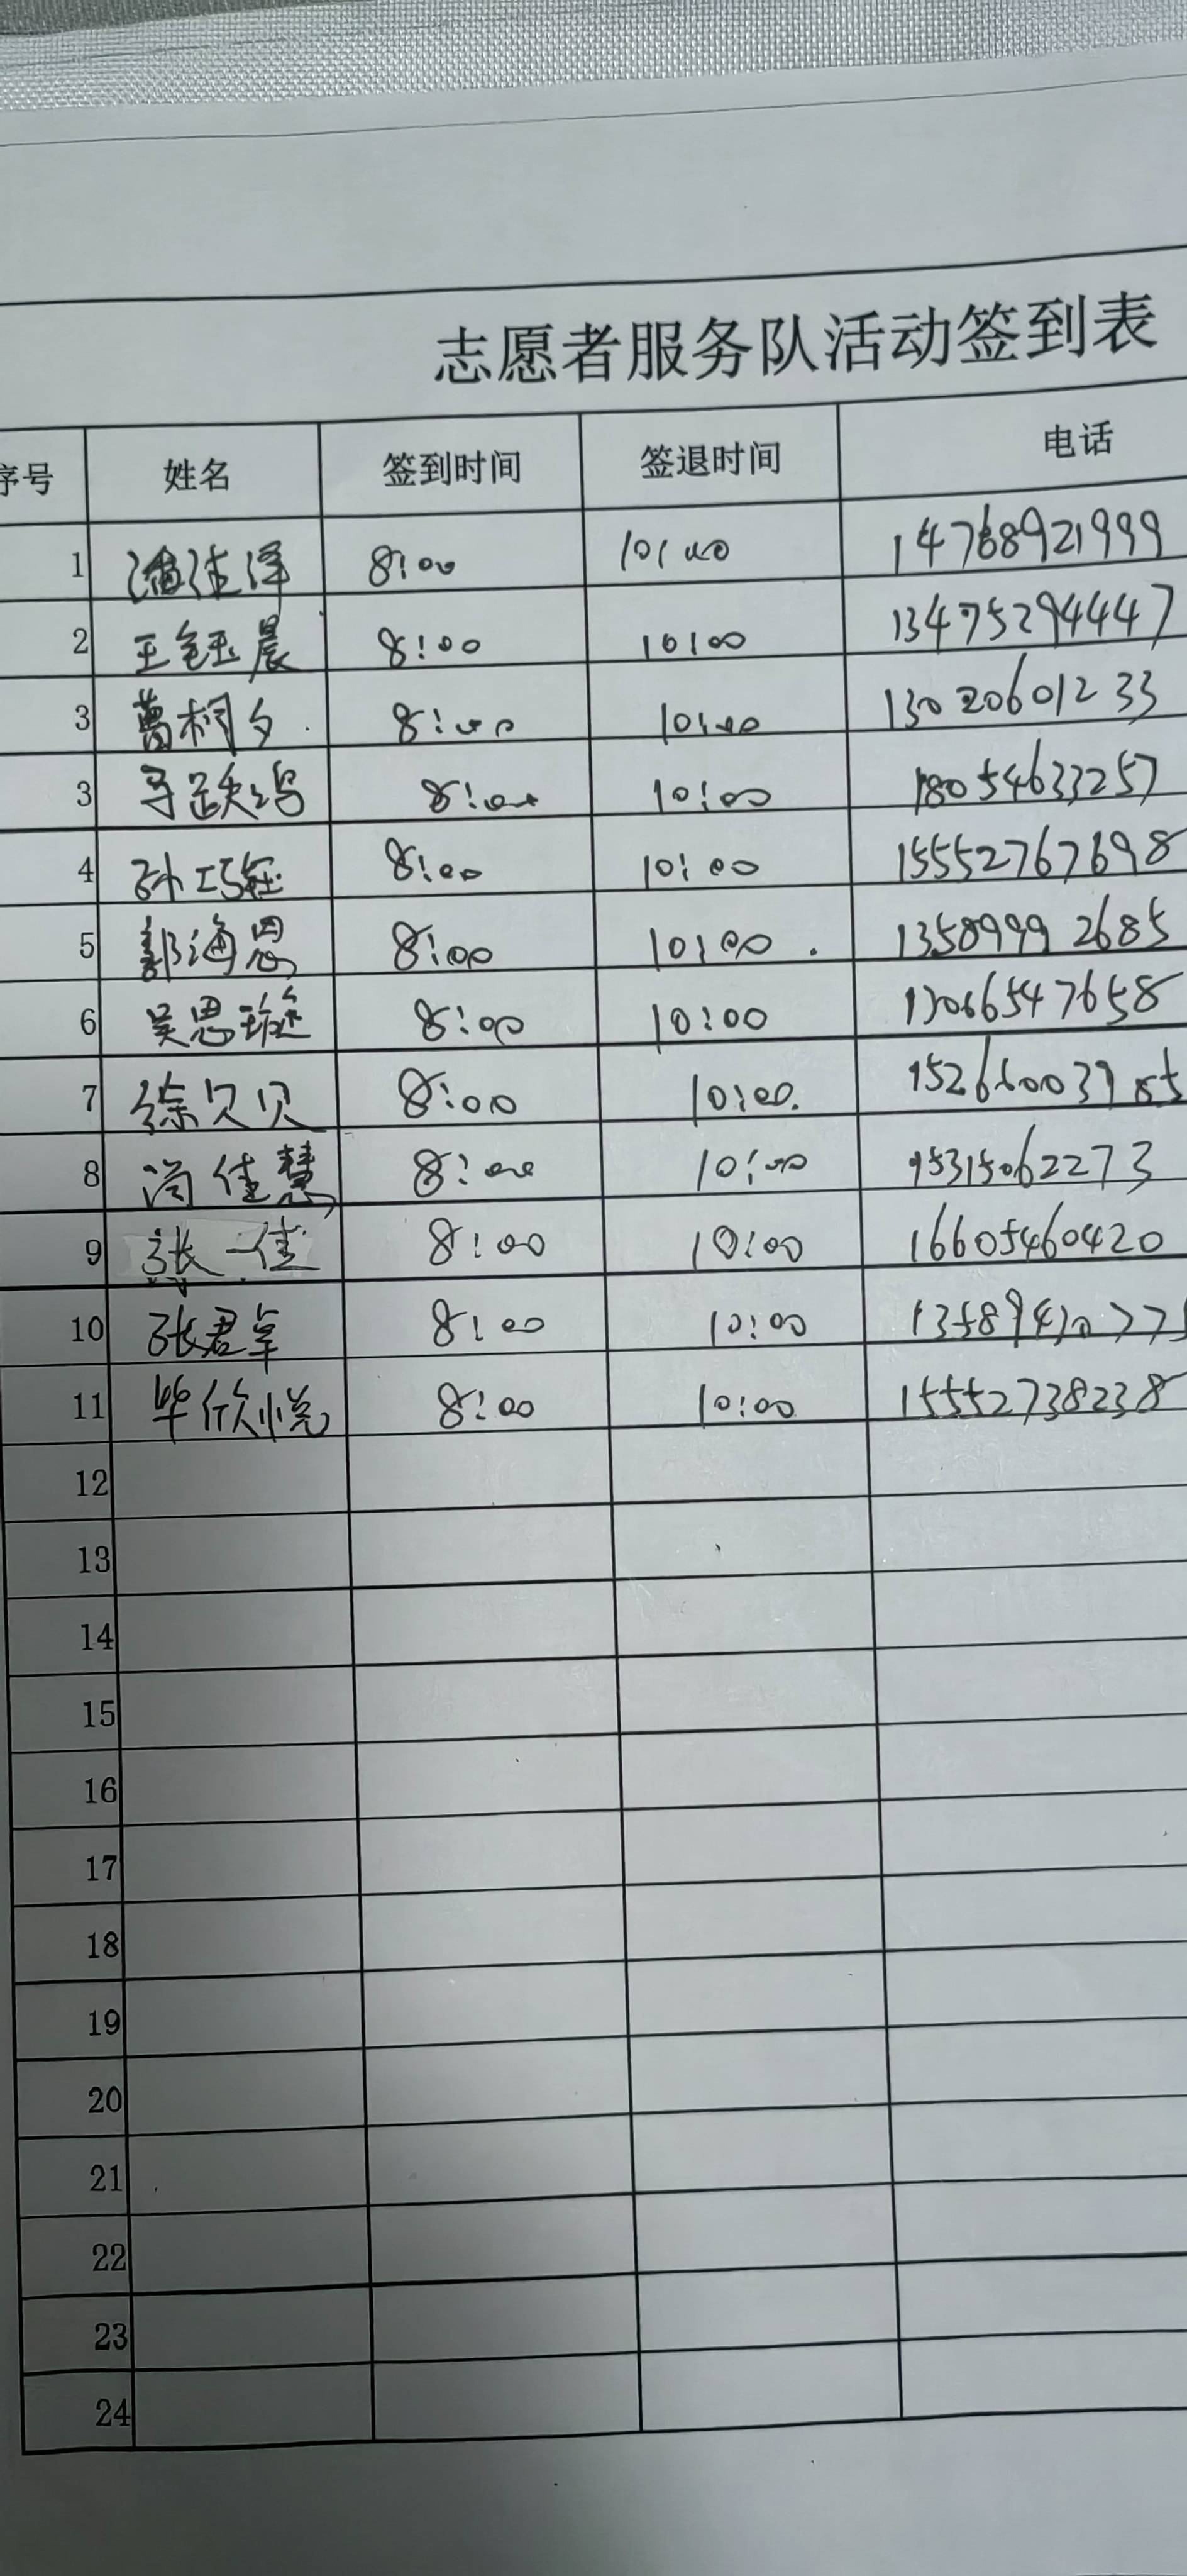 志愿者服务队活动签到表
序号 姓名 签到时间 签退时间 电话
1 潘佳泽 8:00 10:00 14768921999
2 王钰晨 8:00 10:00 13475294447
3 葛桐夕 8:00 10:00 13020601233
3 8:00 10:00 18054633257
4 孙巧钰 8:00 10:00 15552767698
5 郭海恩 8:00 10:00 13589992685
6 吴思璇 8:00 10:00 13066547658
7 徐贝贝 8:00 10:00
8 尚佳慧 8:00 10:00 15315062273
9 张一佳 8:00 10:00 16605460420
10 张君卓 8:00 10:00
11 毕欣悦 8:00 10:00 15552738238
12
13
14
15
16
17
18
19
20
21
22
23
24